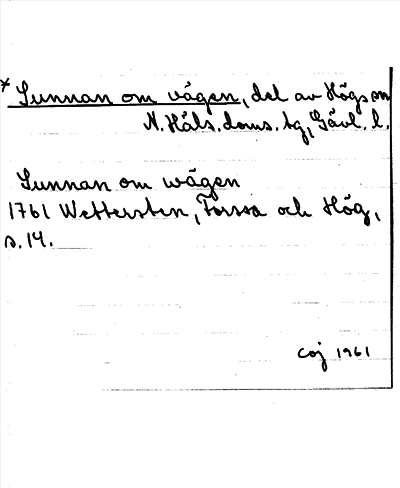 * Sunnan om vägen, del av Högs sn
N. Häls. doms. tg, Gävl. l.
Sunnan om wägen
1761 Wettersten, Forssa och Hög,
s. 14.
coj 1961